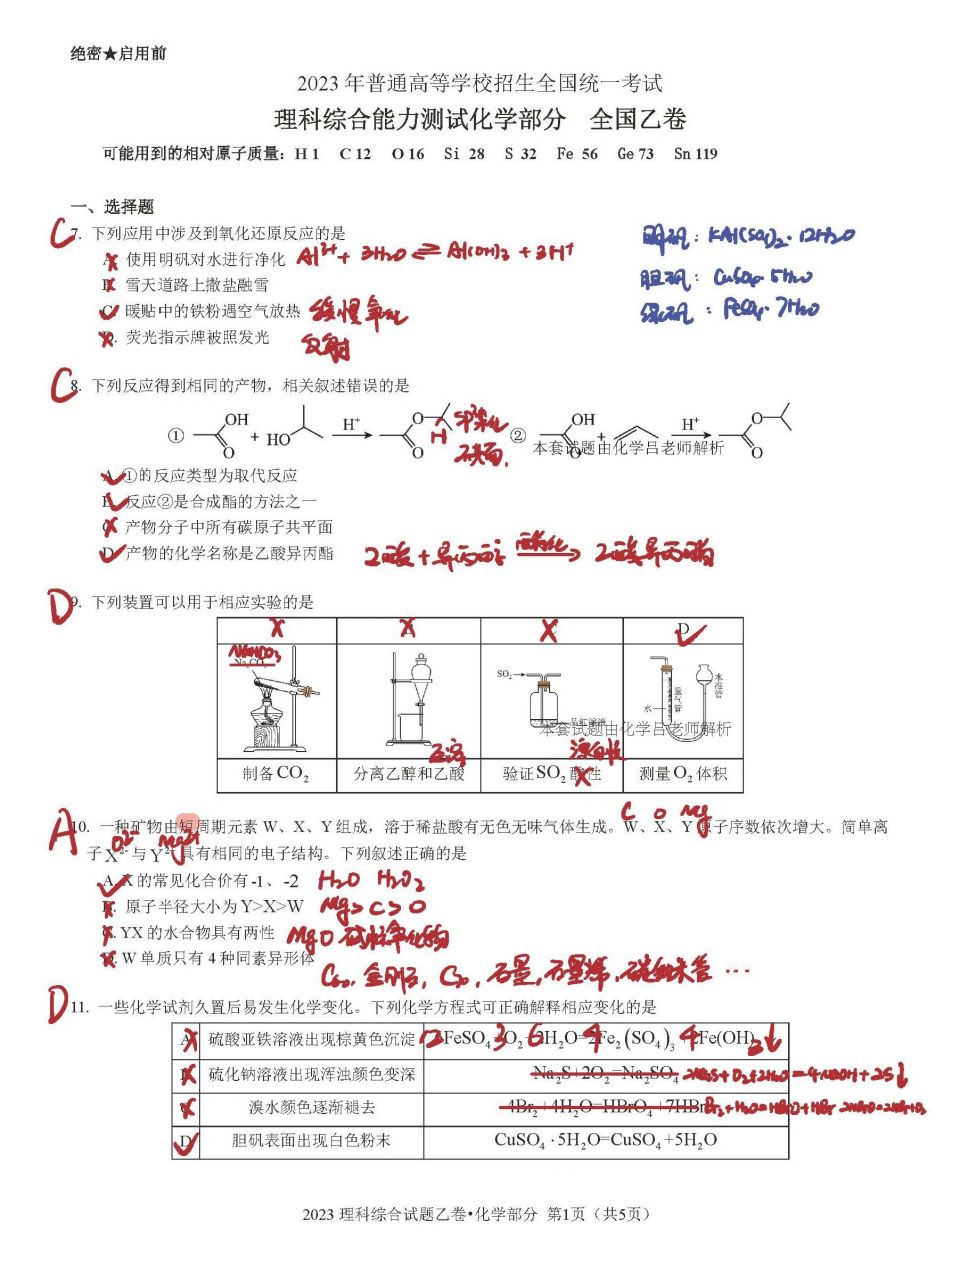 绝密★启用前
2023 年普通高等学校招生全国统一考试
理科综合能力测试化学部分 全国乙卷
可能用到的相对原子质量：H 1 C 12 O 16 Si 28 S 32 Fe 56 Ge 73 Sn 119
一、选择题
C 7. 下列应用中涉及到氧化还原反应的是
明矾：KAl(SO₄)₂·12H₂O
使用明矾对水进行净化 Al³⁺ + 3H₂O ⇌ Al(OH)₃ + 3H⁺
胆矾：CuSO₄·5H₂O
雪天道路上撒盐融雪
绿矾：FeSO₄·7H₂O
C 暖贴中的铁粉遇空气放热 缓慢氧化
荧光指示牌被照发光 反射
C 8. 下列反应得到相同的产物，相关叙述错误的是
① OH O + HO H⁺ O O H sp³杂化 不共面 ② OH O + H⁺ O O
本套试题由化学吕老师解析
A ①的反应类型为取代反应
反应②是合成酯的方法之一
C 产物分子中所有碳原子共平面
D 产物的化学名称是乙酸异丙酯 乙酸 + 异丙醇 酯化→ 乙酸异丙酯
D 9. 下列装置可以用于相应实验的是
D
NaHCO₃ Na₂CO₃
SO₂ 品红溶液
水 量气管 水准管
本套试题由化学吕老师解析
互溶 漂白性
制备 CO₂ 分离乙醇和乙酸 验证 SO₂ 酸性 测量 O₂ 体积
C O Mg
A 10. 一种矿物由短周期元素 W、X、Y 组成，溶于稀盐酸有无色无味气体生成。W、X、Y 原子序数依次增大。简单离
O²⁻ Mg²⁺
子 X²⁻ 与 Y²⁺ 具有相同的电子结构。下列叙述正确的是
A. X 的常见化合价有 -1、-2 H₂O H₂O₂
原子半径大小为 Y>X>W Mg > C > O
YX 的水合物具有两性 MgO 碱性氧化物
W 单质只有 4 种同素异形体 C₆₀, 金刚石, C₇₀, 石墨, 石墨烯, 碳纳米管 …
D 11. 一些化学试剂久置后易发生化学变化。下列化学方程式可正确解释相应变化的是
A 硫酸亚铁溶液出现棕黄色沉淀 12 6FeSO₄ 3 O₂ 6 2H₂O=2Fe₂(SO₄)₃ 4 4 2Fe(OH)₃↓
硫化钠溶液出现浑浊颜色变深 Na₂S+2O₂=Na₂SO₄ 2Na₂S+O₂+2H₂O=4NaOH+2S↓
溴水颜色逐渐褪去 4Br₂+4H₂O=HBrO₄+7HBr Br₂+H₂O=HBrO+HBr 2HBrO=2HBr+O₂
D 胆矾表面出现白色粉末 CuSO₄·5H₂O=CuSO₄+5H₂O
2023 理科综合试题乙卷•化学部分 第1页（共5页）